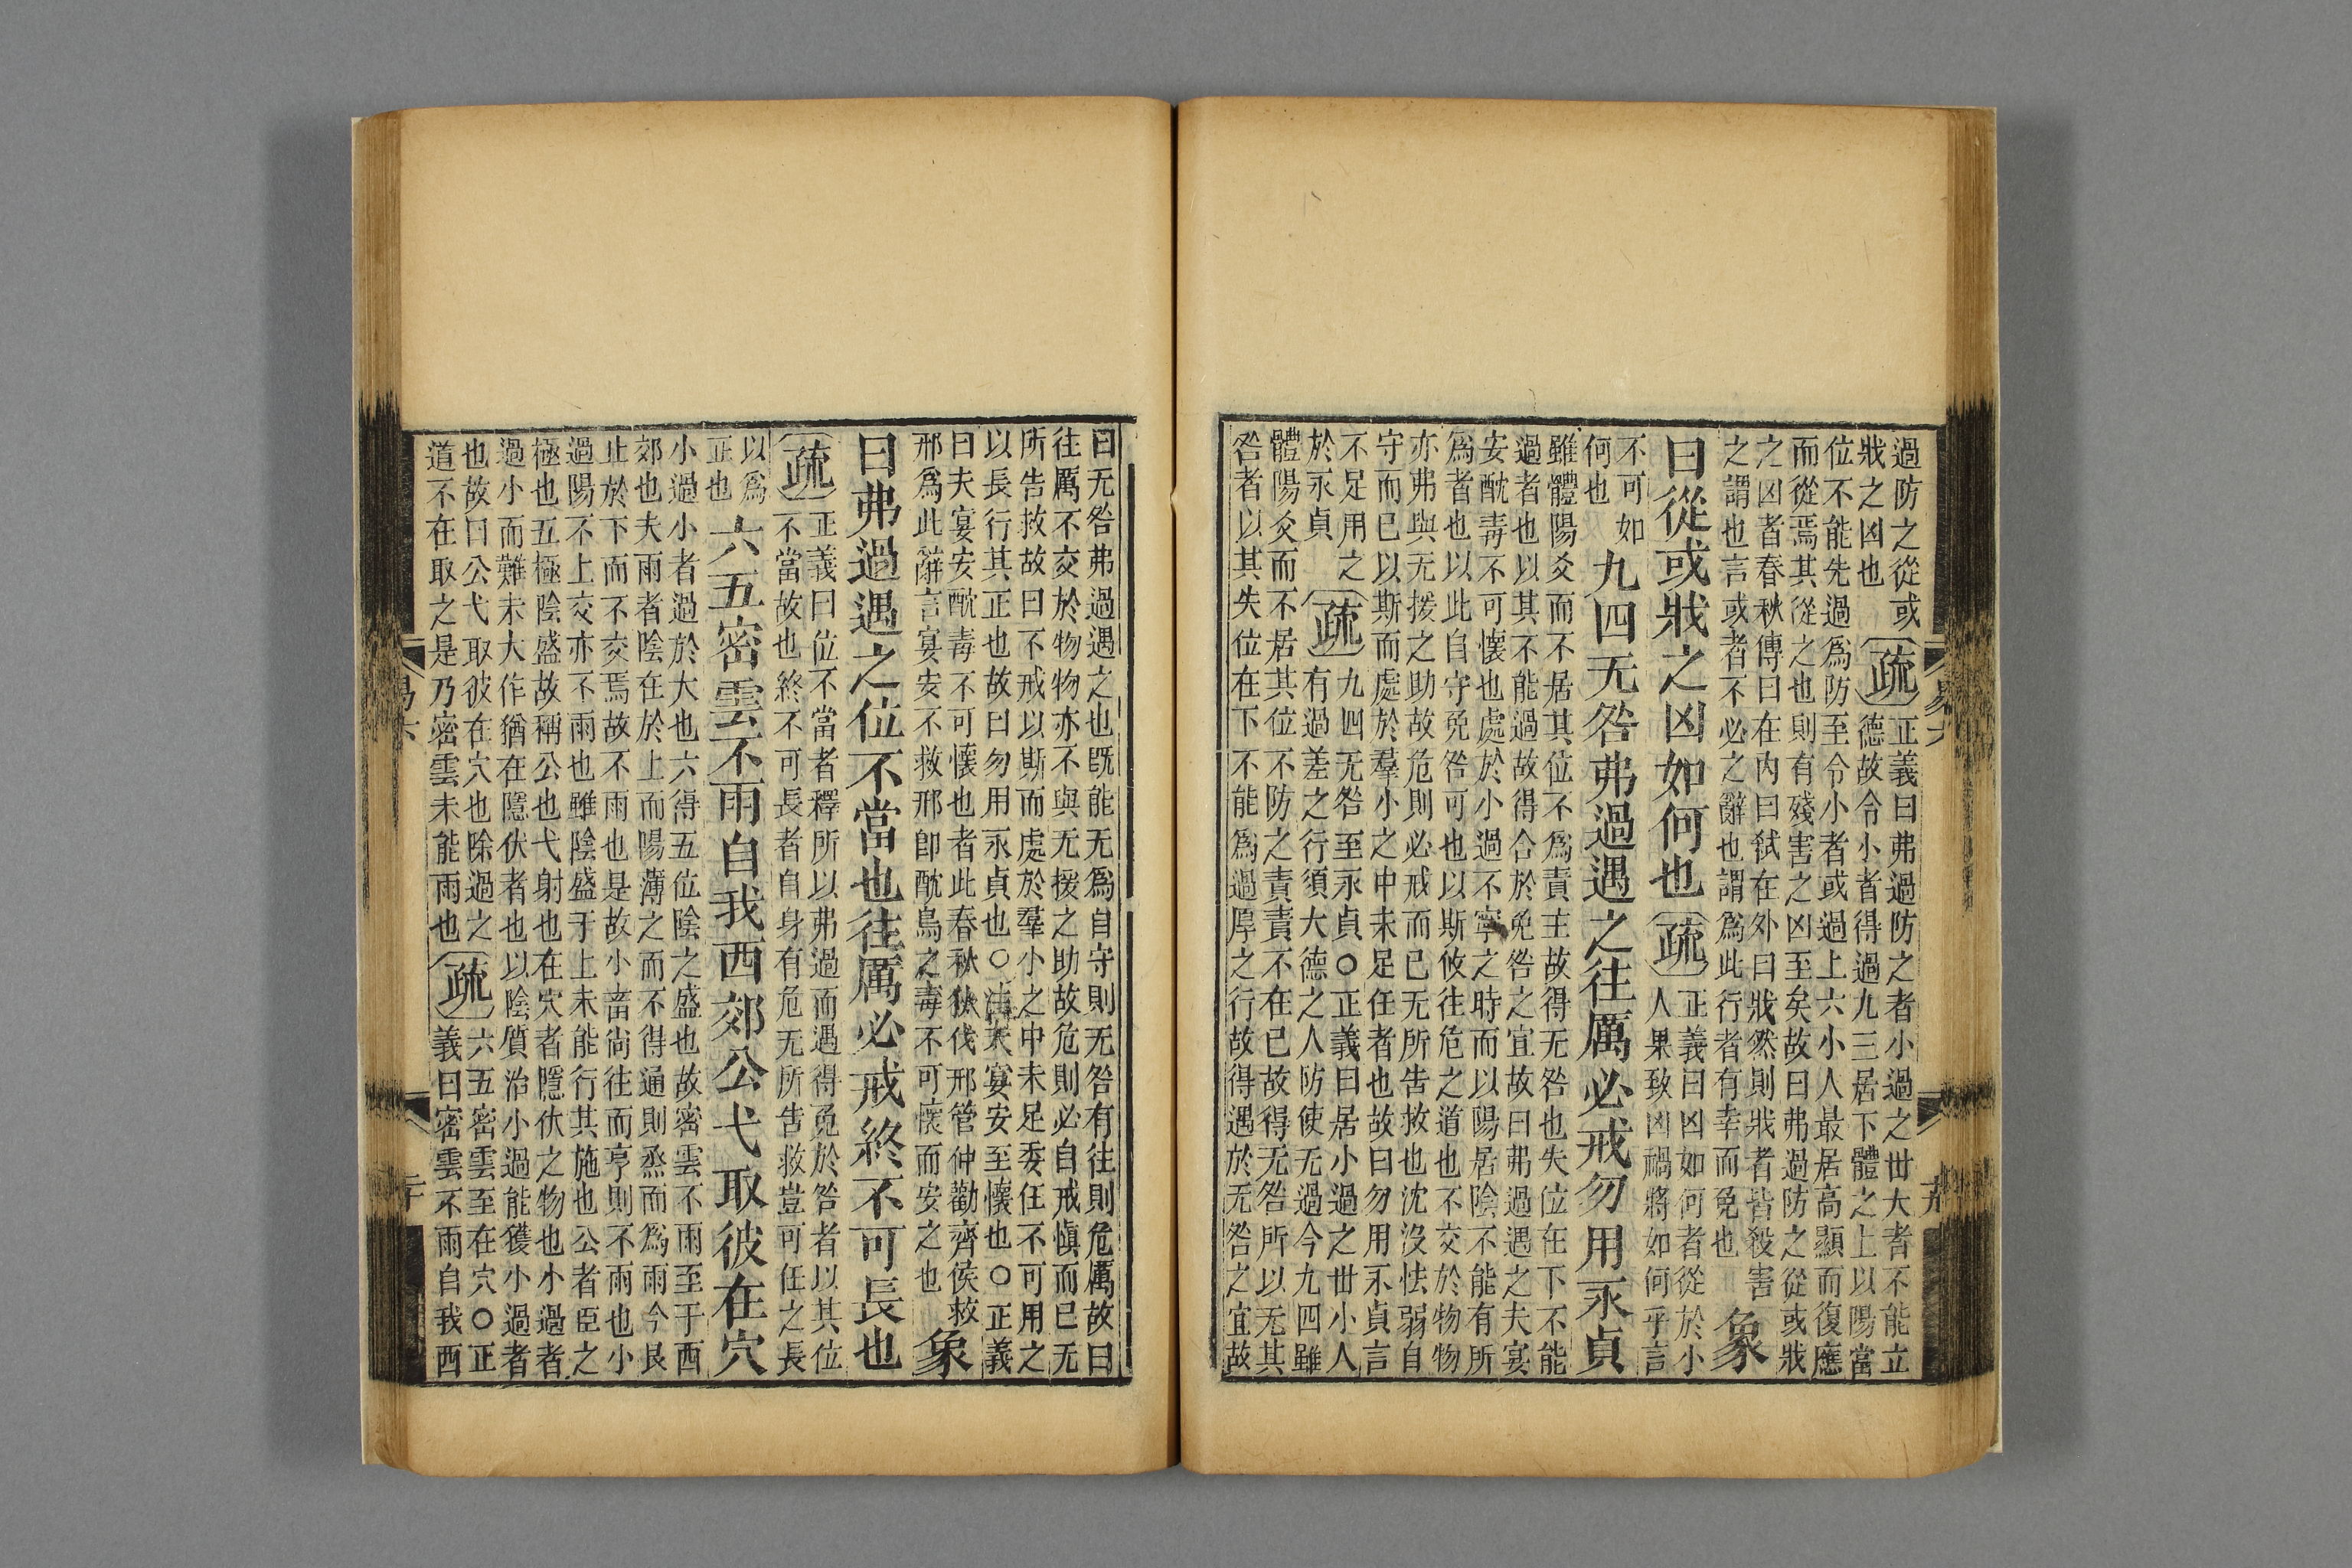 過防之從或
戕之凶也
疏
正義曰弗過防之者小過之世大者不能立
德故令小者得過九三居下體之上以陽當
位不能先過爲防至令小者或過上六小人最居高顯而復應
而從焉其從之也則有殘害之凶至矣故曰弗過防之從或戕
之凶者春秋傳曰在內曰弑在外曰戕然則戕者皆殺害
之謂也言或者不必之辭也謂爲此行者有幸而免也
象
曰從或戕之凶如何也
疏
正義曰凶如何者從於小
人果致凶禍將如何乎言
不可如
何也
九四无咎弗過遇之往厲必戒勿用永貞
雖體陽爻而不居其位不爲責主故得无咎也失位在下不能
過者也以其不能過故得合於免咎之宜故曰弗過遇之夫宴
安酖毒不可懷也處於小過不寧之時而以陽居陰不能有所
爲者也以此自守免咎可也以斯攸往危之道也不交於物物
亦弗與无援之助故危則必戒而已无所告救也沈沒怯弱自
守而已以斯而處於羣小之中未足任者也故曰勿用永貞言
不足用之
於永貞
疏
九四无咎至永貞○正義曰居小過之世小人
有過差之行須大德之人防使无過今九四雖
體陽爻而不居其位不防之責責不在已故得无咎所以无其
咎者以其失位在下不能爲過厚之行故得遇於无咎之宜故
易六
十九
曰无咎弗過遇之也既能无爲自守則无咎有往則危厲故曰
往厲不交於物物亦不與无援之助故危則必自戒愼而已无
所告救故曰不戒以斯而處於羣小之中未足委任不可用之
以長行其正也故曰勿用永貞也○注夫宴安至懷也○正義
曰夫宴安酖毒不可懷也者此春秋狄伐邢管仲勸齊侯救
邢爲此辭言宴安不救邢卽酖鳥之毒不可懷而安之也
象
曰弗過遇之位不當也往厲必戒終不可長也
疏
正義曰位不當者釋所以弗過而遇得免於咎者以其位
不當故也終不可長者自身有危无所告救豈可任之長
以爲
正也
六五密雲不雨自我西郊公弋取彼在穴
小過小者過於大也六得五位陰之盛也故密雲不雨至于西
郊也夫雨者陰在於上而陽薄之而不得通則烝而爲雨今艮
止於下而不交焉故不雨也是故小畜尚往而亨則不雨也小
過陽不上交亦不雨也雖陰盛于上未能行其施也公者臣之
極也五極陰盛故稱公也弋射也在穴者隱伏之物也小過者
過小而難未大作猶在隱伏者也以陰質治小過能獲小過者
也故曰公弋取彼在穴也除過之
道不在取之是乃密雲未能雨也
疏
六五密雲至在穴○正
義曰密雲不雨自我西
易六
二十